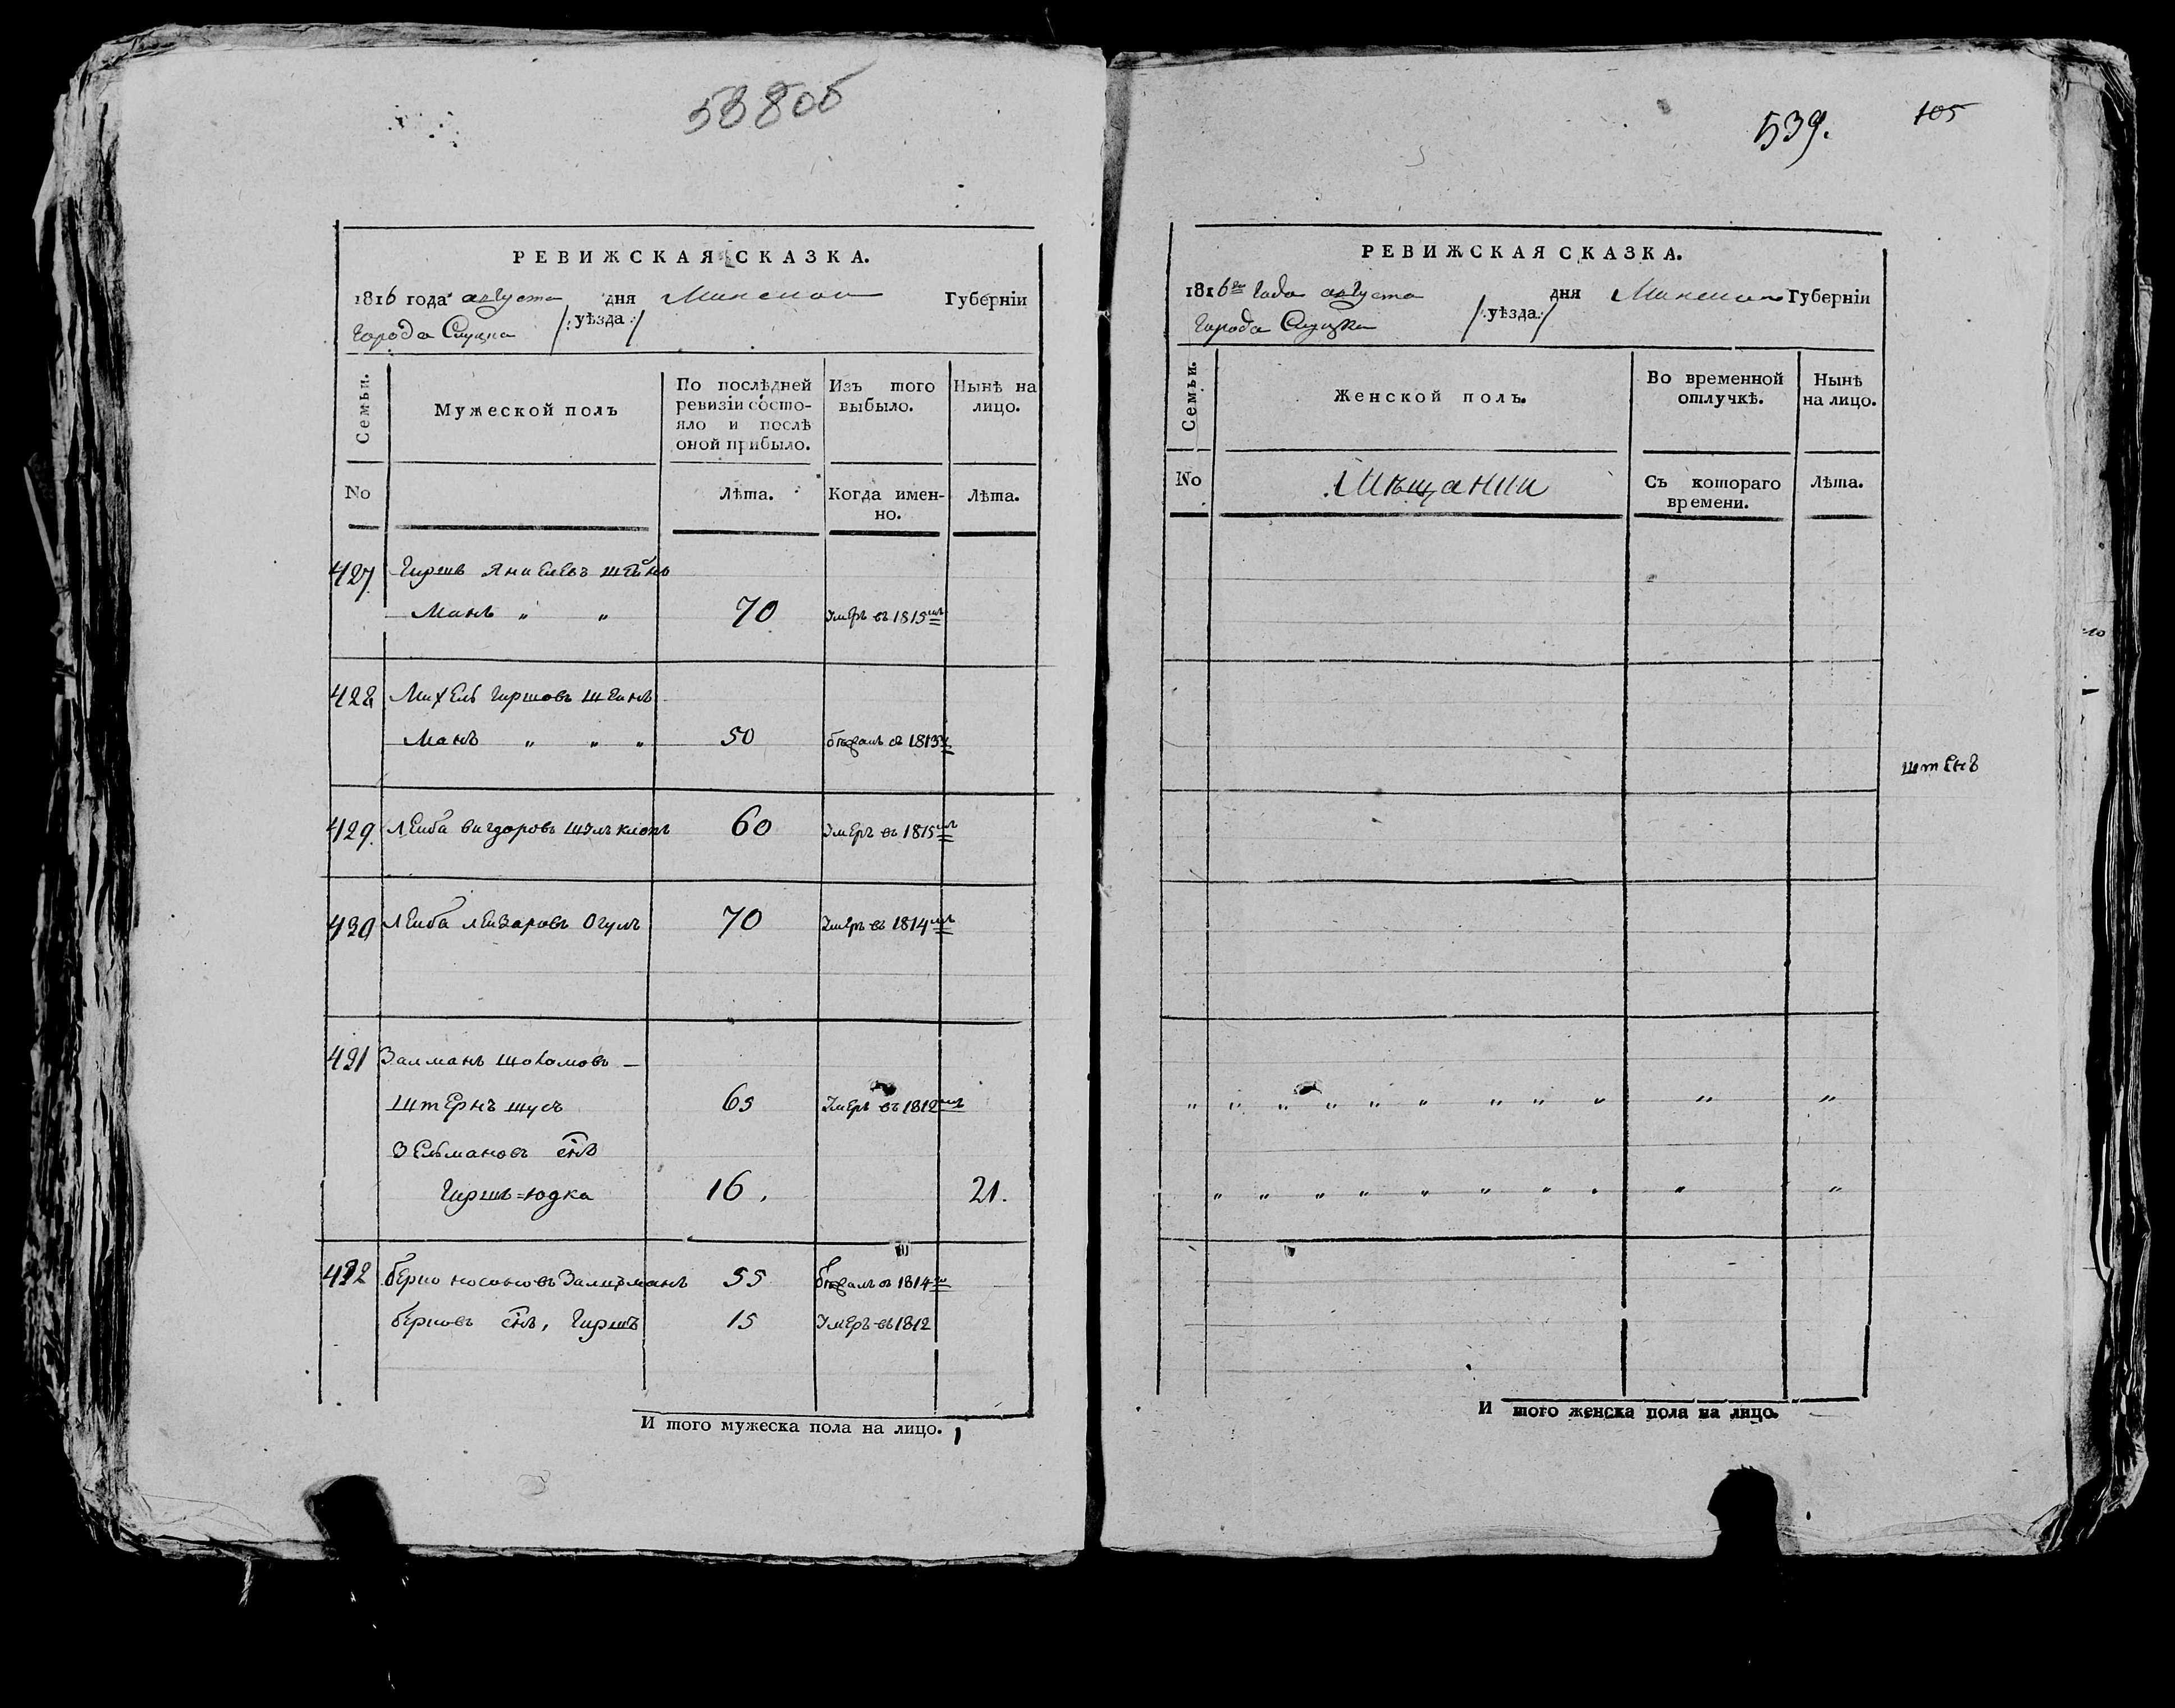 538об
РЕВИЖСКАЯ СКАЗКА.
1816 года августа дня Минской Губерніи
города Слуцка /:уѣзда:/
Семьи.
Мужеской полъ
По послѣдней ревизіи состо-
яло и послѣ
оной прибыло.
Изъ того
выбыло.
Нынѣ на
лицо.
No
Лѣта.
Когда имен-
но.
Лѣта.
427 Гиршъ Штейнъ
Манъ „ „ 70 Умеръ въ 1815мъ
428 Михель Гиршовъ Штейнъ
Манъ „ „ „ 50 въ 1813м
429. Лейба Вигдоровъ 60 Умеръ въ 1815мъ
430 Лейба Лейзаровъ Огулъ 70 Умеръ въ 1814мъ
431 Залманъ Шоломовъ —
Штернъ шусъ 65 Умеръ въ 1812мъ
Зельмановъ снъ
Гиршъ=Юдка 16. 21.
432 Берко Носоновъ 55 въ 1814м
Берковъ снъ, Гиршъ 15 Умеръ въ 1812
И того мужеска пола на лицо. 1
539.
105
РЕВИЖСКАЯ СКАЗКА.
1816го Года августа дня Минской Губерніи
города Слуцка /:уѣзда:/
Семьи.
Женской полъ.
Во временной
отлучкѣ.
Нынѣ
на лицо.
No
Мѣщании
Съ котораго
времени.
Лѣта.
штенъ
„ „ „ „ „ „ „ „ „ „ „
„ „ „ „ „ „ „ „ „ „
И того женска пола на лицо.